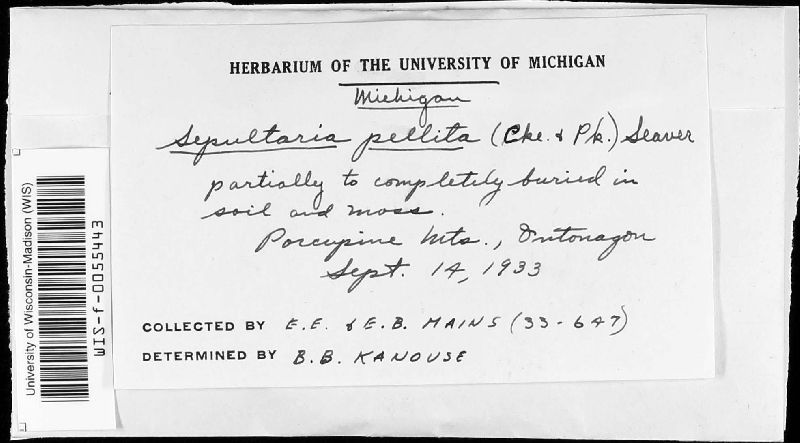 HERBARIUM OF THE UNIVERSITY OF MICHIGAN
Michigan
Sepultaria pellita (Cke. & Pk.) Seaver
partially to completely buried in
soil and moss.
Porcupine Mts., Ontonagon
Sept. 14, 1933
COLLECTED BY E.E. & E.B. MAINS (33-647)
DETERMINED BY B.B. KANOUSE
University of Wisconsin-Madison (WIS)
WIS-f-0055443